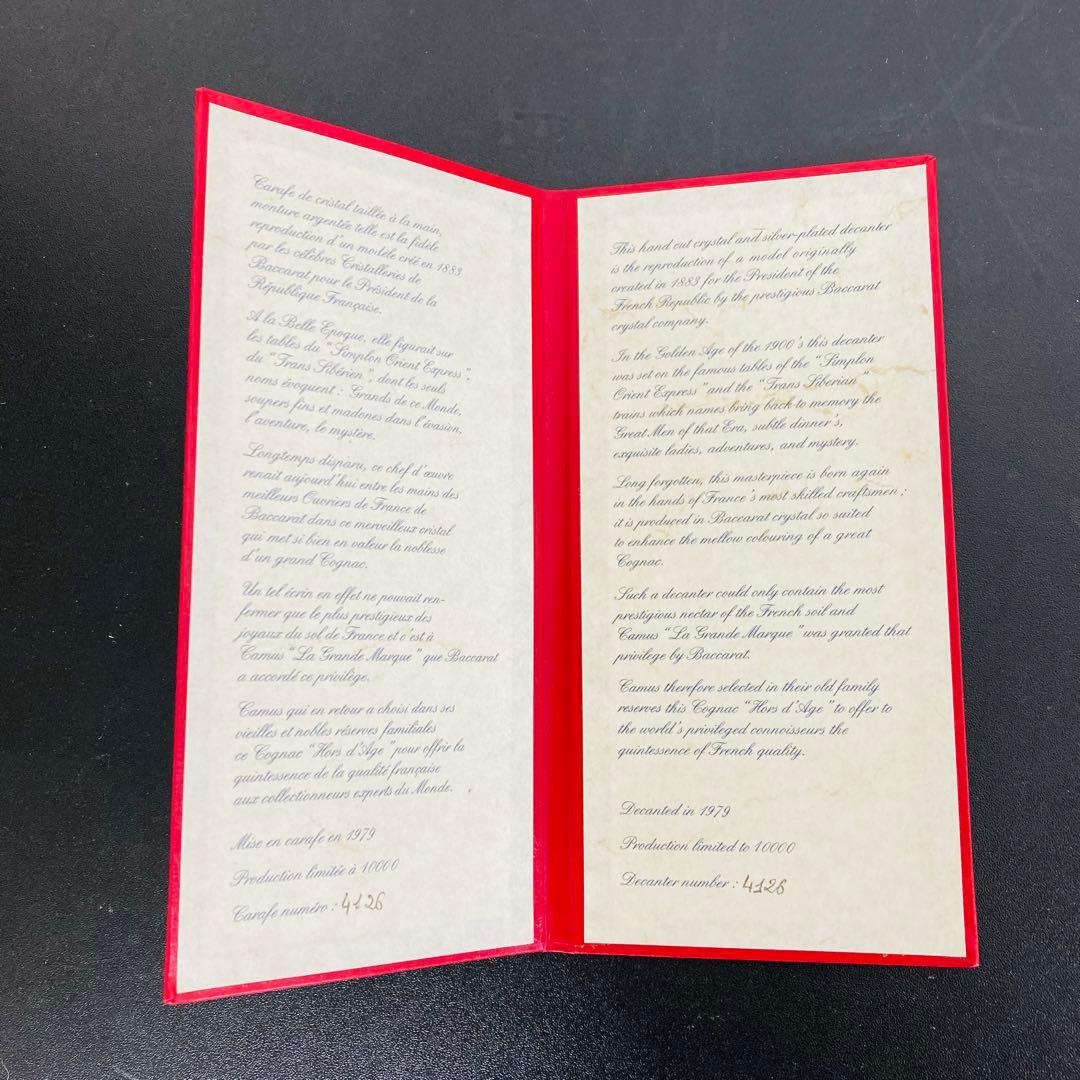 Carafe de cristal taillée à la main,
monture argentée telle est la fidèle
reproduction d'un modèle créé en 1883
par les célèbres Cristalleries de
Baccarat pour le Président de la
République Française.
A la Belle Epoque, elle figurait sur
les tables du "Simplon Orient Express",
du "Trans Sibérien", dont les seuls
noms évoquent : Grands de ce Monde,
soupers fins et madones dans l'évasion,
l'aventure, le mystère.
Longtemps disparu, ce chef d'œuvre
renait aujourd'hui entre les mains des
meilleurs Ouvriers de France de
Baccarat dans ce merveilleux cristal
qui met si bien en valeur la noblesse
d'un grand Cognac.
Un tel écrin en effet ne pouvait ren-
fermer que le plus prestigieux des
joyaux du sol de France et c'est à
Camus "La Grande Marque" que Baccarat
a accordé ce privilège.
Camus qui en retour a choisi dans ses
vieilles et nobles réserves familiales
ce Cognac "Hors d'Age" pour offrir la
quintessence de la qualité française
aux collectionneurs experts du Monde.
Mise en carafe en 1979
Production limitée à 10000
Carafe numéro : 4126
This hand cut crystal and silver-plated decanter
is the reproduction of a model originally
created in 1883 for the President of the
French Republic by the prestigious Baccarat
crystal company.
In the Golden Age of the 1900's this decanter
was set on the famous tables of the "Simplon
Orient Express" and the "Trans Siberian"
trains which names bring back to memory the
Great Men of that Era, subtle dinner's,
exquisite ladies, adventures, and mystery.
Long forgotten, this masterpiece is born again
in the hands of France's most skilled craftsmen ;
it is produced in Baccarat crystal so suited
to enhance the mellow colouring of a great
Cognac.
Such a decanter could only contain the most
prestigious nectar of the French soil and
Camus "La Grande Marque" was granted that
privilege by Baccarat.
Camus therefore selected in their old family
reserves this Cognac "Hors d'Age" to offer to
the world's privileged connoisseurs the
quintessence of French quality.
Decanted in 1979
Production limited to 10000
Decanter number : 4126